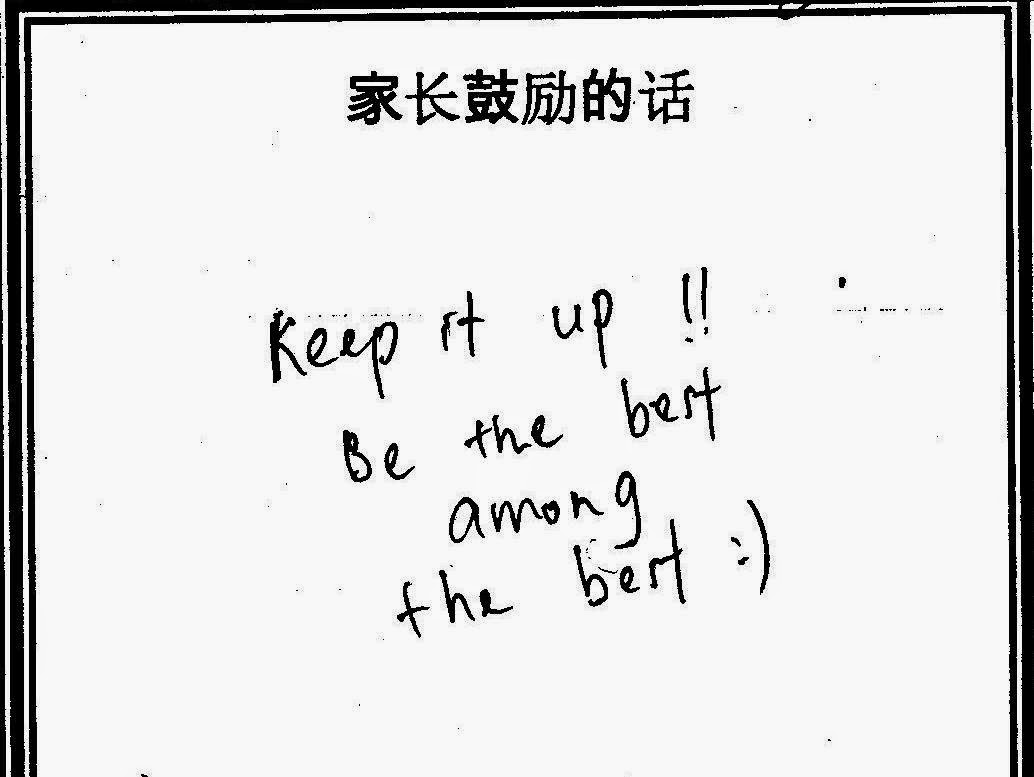 家长鼓励的话
Keep it up !!
Be the best
among
the best :)